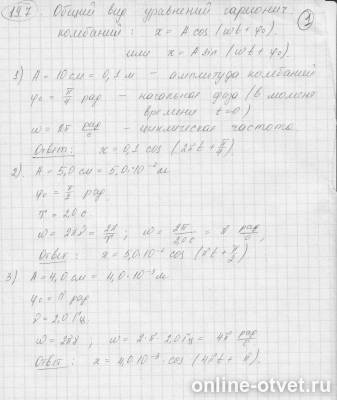 197 Общий вид уравнений гармонич. ①
колебаний: x = A cos (ωt + φ₀)
или x = A sin (ωt + φ₀).
1) A = 10 см = 0,1 м – амплитуда колебаний
φ₀ = π/4 рад – начальная фаза (в момент
времени t = 0)
ω = 2π рад/с – циклическая частота
Ответ: x = 0,1 cos (2πt + π/4).
2) A = 5,0 см = 5,0·10⁻² м
φ₀ = π/2 рад
T = 2,0 с
ω = 2πν = 2π/T; ω = 2π/2,0с = π рад/с
Ответ: x = 5,0·10⁻² cos (πt + π/2)
3) A = 4,0 см = 4,0·10⁻² м
φ₀ = π рад
ν = 2,0 Гц
ω = 2πν, ω = 2·π·2,0Гц = 4π рад/с
Ответ: x = 4,0·10⁻²·cos (4πt + π).
online-otvet.ru